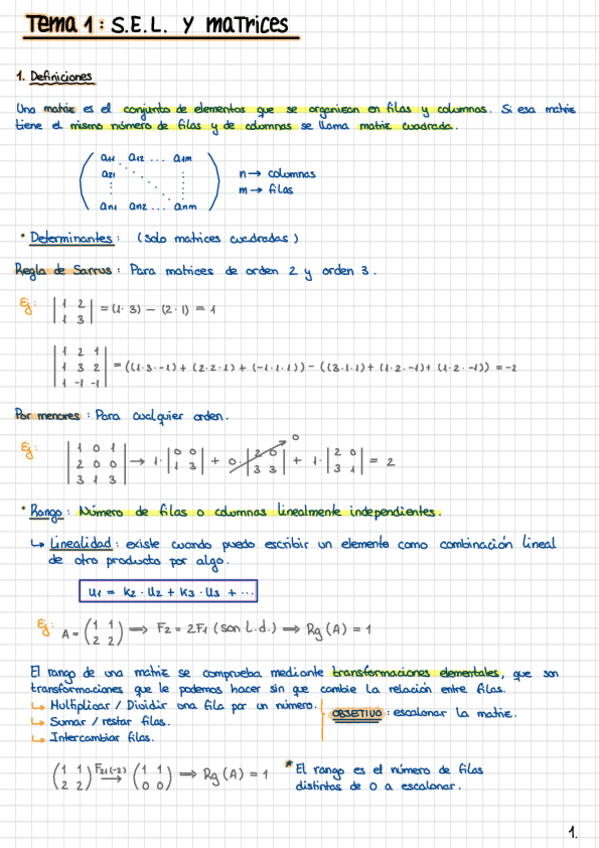 Tema 1: S.E.L. y matrices
1. Definiciones
Una matriz es el conjunto de elementos que se organizan en filas y columnas. Si esa matriz
tiene el mismo número de filas y de columnas se llama matriz cuadrada.
( a11 a12 ... a1m
a21
an1 an2 ... anm )
n → columnas
m → filas
* Determinantes: (solo matrices cuadradas)
Regla de Sarrus: Para matrices de orden 2 y orden 3.
Ej: | 1 2 |
| 1 3 | = (1·3) - (2·1) = 1
| 1 2 1 |
| 1 3 2 | = ((1·3·-1) + (2·2·1) + (-1·1·1)) - ((3·1·1) + (1·2·-1) + (1·2·-1)) = -2
| 1 -1 -1 |
Por menores: Para cualquier orden.
Ej: | 1 0 1 |
| 2 0 0 | → 1· | 0 0 | + 0· | 2 0 | + 1· | 2 0 | = 2
| 3 1 3 | | 1 3 | | 3 3 | | 3 1 |
0
* Rango: Número de filas o columnas linealmente independientes.
↳ Linealidad: existe cuando puedo escribir un elemento como combinación lineal
de otro producto por algo.
u1 = k2 · u2 + k3 · u3 + ...
Ej: A = ( 1 1
2 2 ) ⟹ F2 = 2F1 (son L.d.) ⟹ Rg (A) = 1
El rango de una matriz se comprueba mediante transformaciones elementales, que son
transformaciones que le podemos hacer sin que cambie la relación entre filas.
↳ Multiplicar / Dividir una fila por un número.
↳ Sumar / restar filas.
↳ Intercambiar filas.
OBJETIVO: escalonar la matriz.
( 1 1
2 2 ) F21(-2) → ( 1 1
0 0 ) ⟹ Rg (A) = 1
* El rango es el número de filas
distintas de 0 a escalonar.
1.